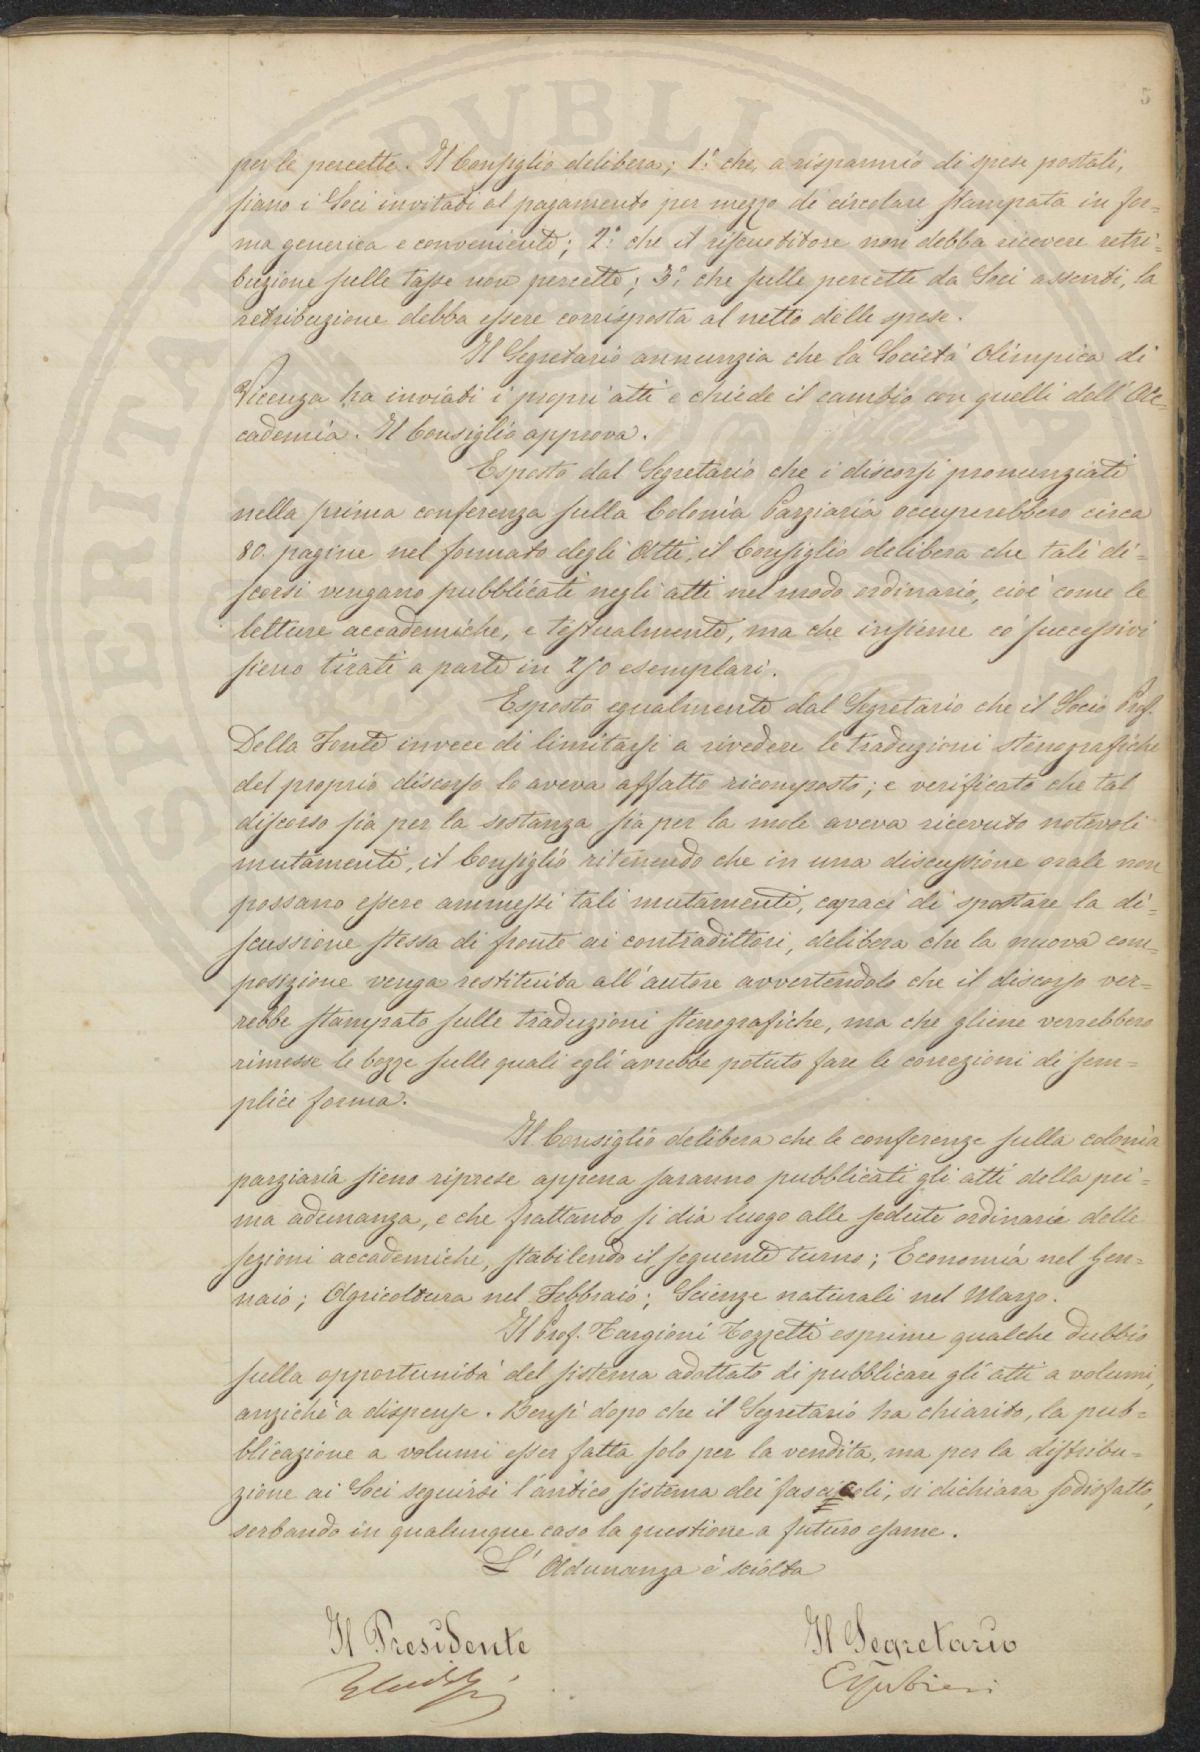 5
per le percette. Il Consiglio delibera; 1.° che, a risparmio di spese postali,
siano i Soci invitati al pagamento per mezzo di circolare stampata in for=
ma generica e conveniente; 2.° che il riscuotitore non debba ricevere retri=
buzione sulle tasse non percette; 3.° che sulle percette da Soci assenti, la
retribuzione debba essere corrisposta al netto delle spese.
Il Segretario annunzia che la Società Olimpica di
Vicenza ha inviati i propri atti e chiede il cambio con quelli dell'Ac=
cademia. Il Consiglio approva.
Esposto dal Segretario che i discorsi pronunziati
nella prima conferenza sulla Colonia Parziaria occuperebbero circa
80. pagine nel formato degli Atti, il Consiglio delibera che tali di=
scorsi vengano pubblicati negli atti nel modo ordinario, cioè come le
letture accademiche, e testualmente, ma che insieme co' successivi
sieno tirati a parte in 250 esemplari.
Esposto egualmente dal Segretario che il Socio Prof.
Della Fonte invece di limitarsi a rivedere le traduzioni stenografiche
del proprio discorso lo aveva affatto ricomposto; e verificato che tal
discorso sia per la sostanza sia per la mole aveva ricevuto notevoli
mutamenti, il Consiglio ritenendo che in una discussione orale non
possano essere ammessi tali mutamenti, capaci di spostare la di=
scussione stessa di fronte ai contradittori, delibera che la nuova com=
posizione venga restituita all'autore avvertendolo che il discorso ver=
rebbe stampato sulle traduzioni stenografiche, ma che gliene verrebbero
rimesse le bozze sulle quali egli avrebbe potuto fare le correzioni di sem=
plice forma.
Il Consiglio delibera che le conferenze sulla colonia
parziaria sieno riprese appena saranno pubblicati gli atti della pri=
ma adunanza, e che frattanto si dia luogo alle sedute ordinarie delle
sezioni accademiche, stabilendo il seguente turno; Economia nel Gen=
naio; Agricoltura nel Febbraio; Scienze naturali nel Marzo.
Il Prof. Targioni Tozzetti esprime qualche dubbio
sulla opportunità del sistema adottato di pubblicare gli atti a volumi,
anziché a dispense. Bensì dopo che il Segretario ha chiarito, la pub=
blicazione a volumi esser fatta solo per la vendita, ma per la distribu=
zione ai Soci seguirsi l'antico sistema dei fascicoli, si dichiara sodisfatto,
serbando in qualunque caso la questione a futuro esame.
L'Adunanza è sciolta
Il Presidente Il Segretario